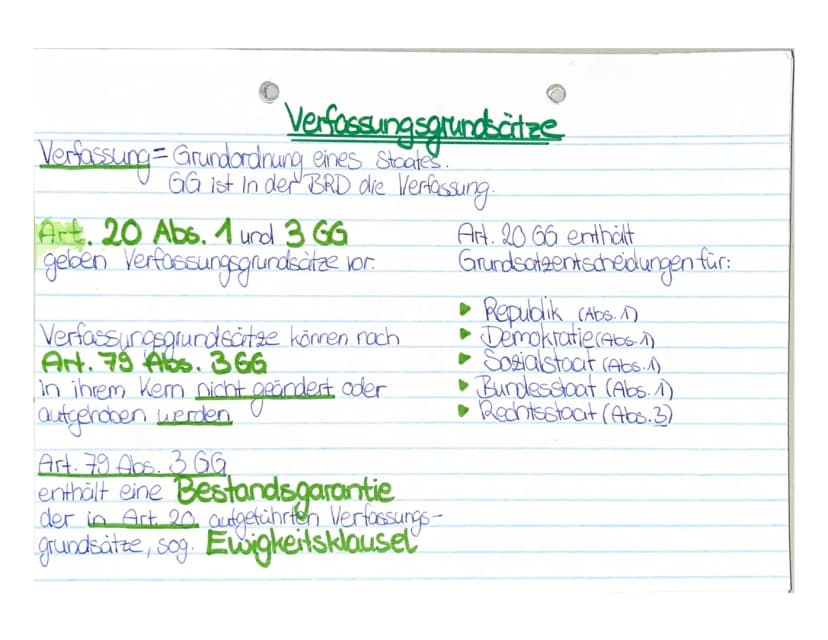 Verfassungsgrundsätze
Verfassung = Grundordnung eines Staates.
GG ist in der BRD die Verfassung.
Art. 20 Abs. 1 und 3 GG
geben Verfassungsgrundsätze vor.
Verfassungsgrundsätze können nach
Art. 79 Abs. 3 GG
in ihrem Kern nicht geändert oder
aufgehoben werden
Art. 79 Abs. 3 GG
enthält eine Bestandsgarantie
der in Art. 20 aufgeführten Verfassungs-
grundsätze, sog. Ewigkeitsklausel
Art. 20 GG enthält
Grundsatzentscheidungen für:
▸ Republik (Abs. 1)
▸ Demokratie (Abs. 1)
▸ Sozialstaat (Abs. 1)
▸ Bundesstaat (Abs. 1)
▸ Rechtsstaat (Abs. 3)